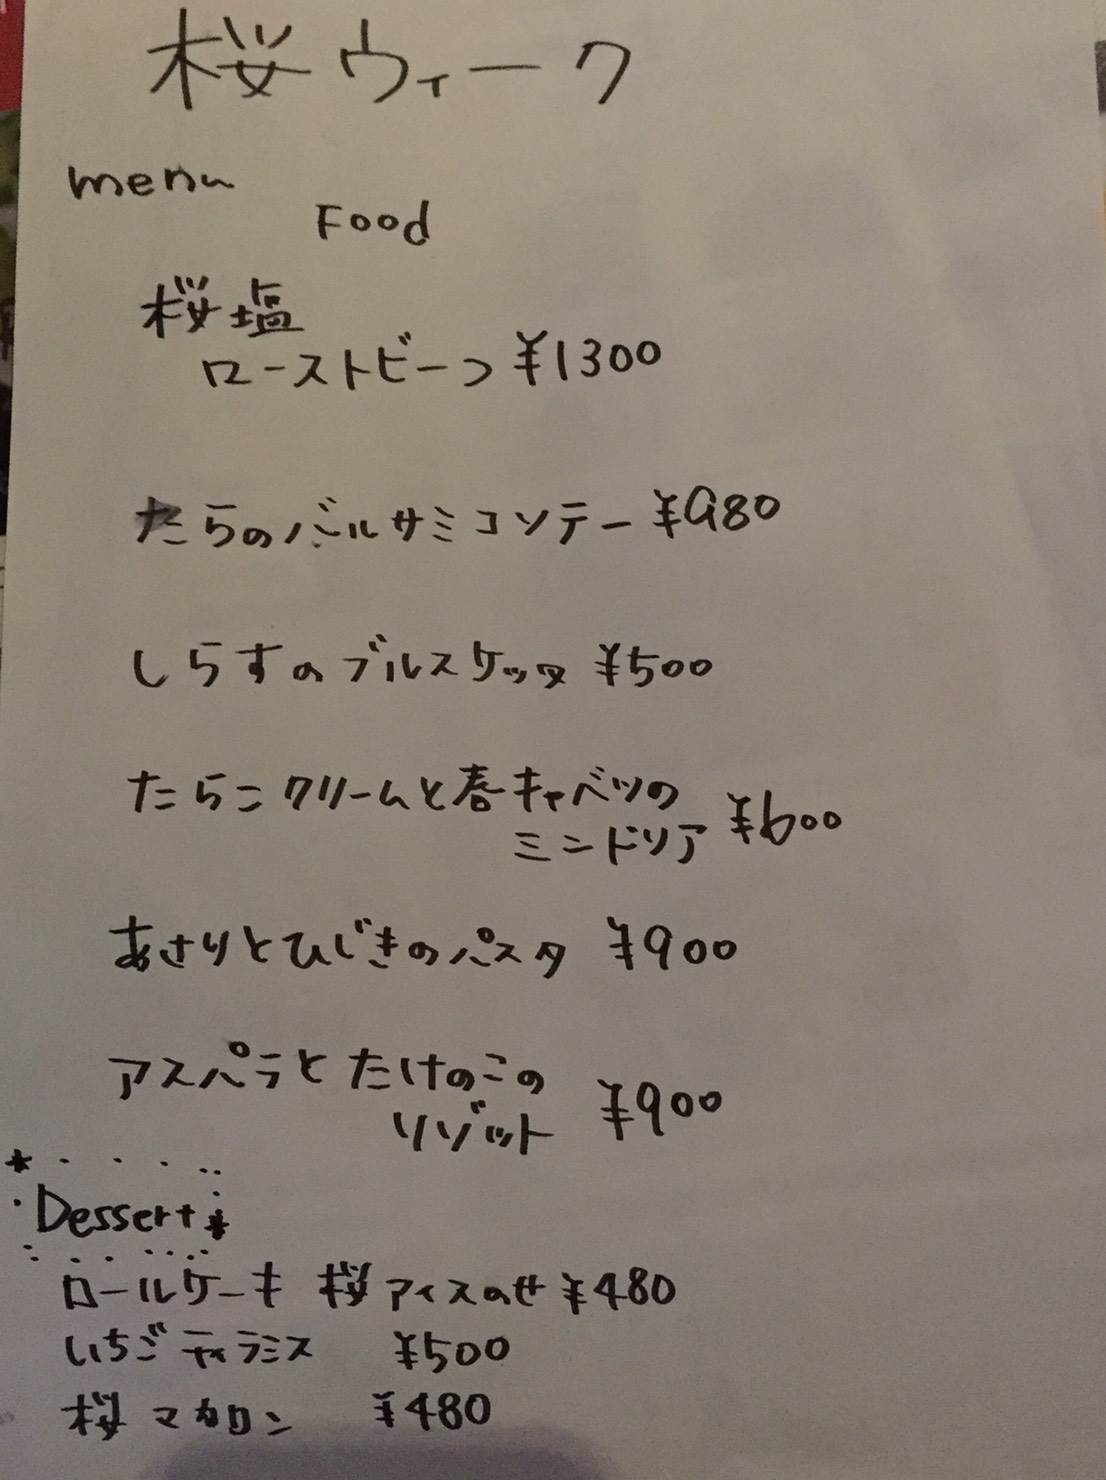 桜ウィーク
menu
Food
桜塩
ローストビーフ ¥1300
たらのバルサミコソテー ¥980
しらすのブルスケッタ ¥500
たらこクリームと春キャベツの
ミニドリア ¥600
あさりとひじきのパスタ ¥900
アスパラとたけのこの
リゾット ¥900
Dessert
ロールケーキ 桜アイスのせ ¥480
いちごティラミス ¥500
桜マカロン ¥480